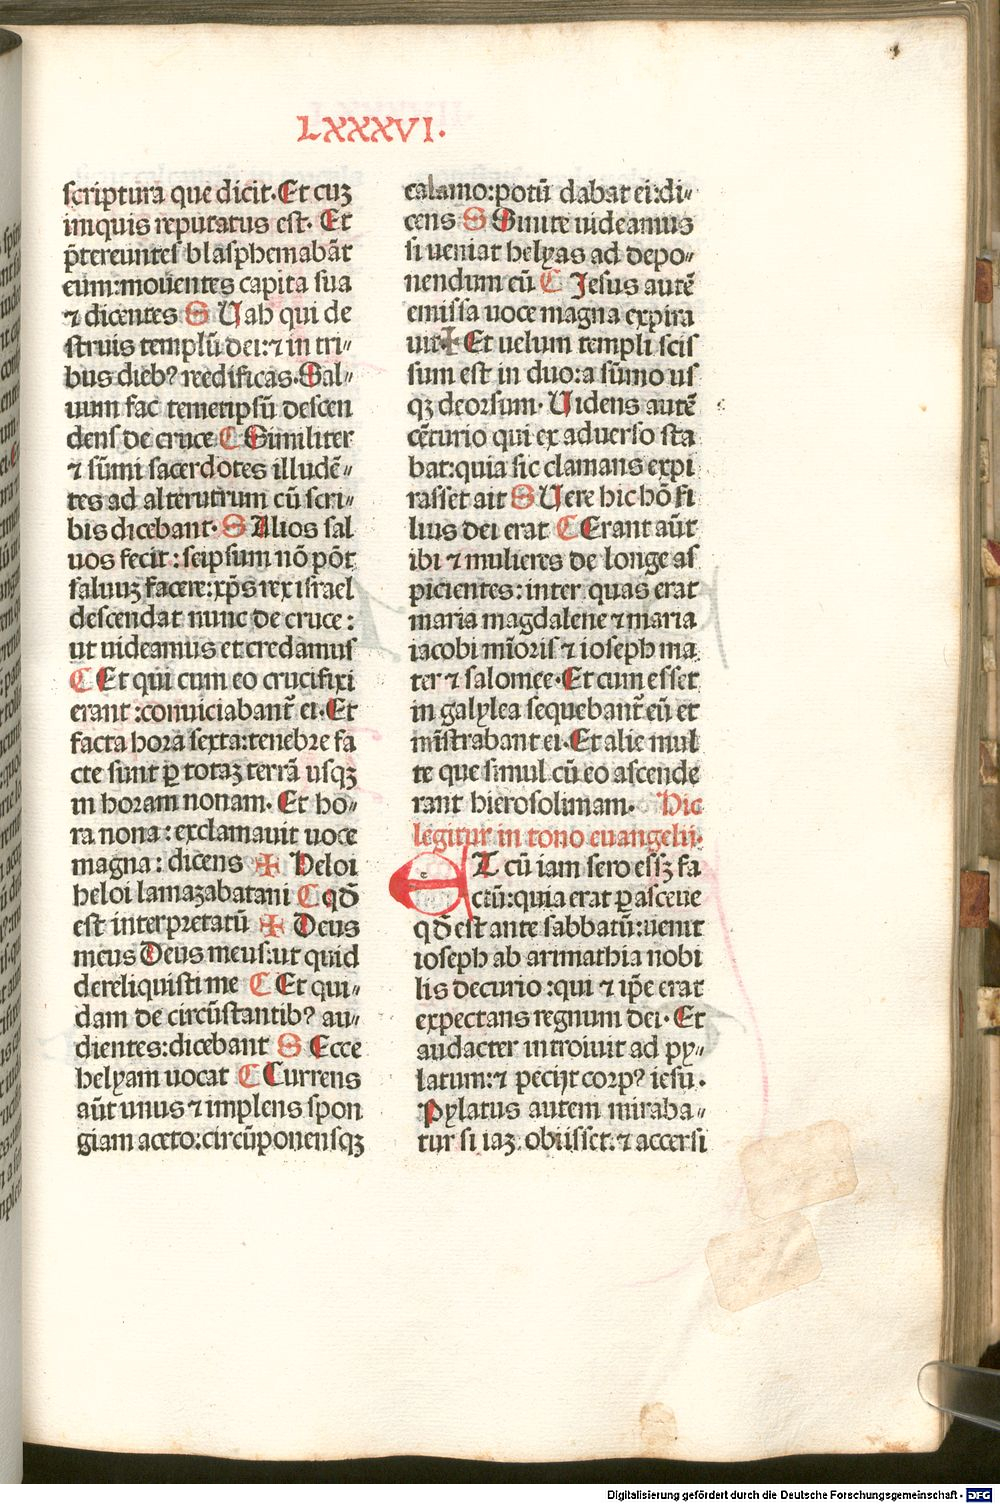 LXXXVI.
scriptura que dicit. Et cuʒ
iniquis reputatus est. Et
p̄tereuntes blasphemabāt
eum: mouentes capita sua
⁊ dicentes S Uah qui de
struis templū dei: ⁊ in tri⸗
bus diebꝰ reedificas. Sal⸗
uum fac temetipsū descen
dens de cruce C Similiter
⁊ sūmi sacerdotes illudē⸗
tes ad alterutrum cū scri⸗
bis dicebant. S Alios sal
uos fecit: seipsum nō pōt
saluuʒ facere: xp̄s rex israel
descendat nunc de cruce:
ut uideamus et credamus
C Et qui cum eo crucifixi
erant: conuiciabant̄ ei. Et
facta hora sexta: tenebre fa
cte sunt ꝑ totaʒ terrā usqʒ
in horam nonam. Et ho⸗
ra nona: exclamauit uoce
magna: dicens ✠ Heloi
heloi lamazabatani C qd̄
est interpretatū ✠ Deus
meus Deus meus: ut quid
dereliquisti me C Et qui⸗
dam de circūstantibꝰ au⸗
dientes: dicebant S Ecce
helyam uocat C Currens
aūt unus ⁊ implens spon
giam aceto: circūponensqʒ
calamo: potū dabat ei: di⸗
cens S Sinite uideamus
si ueniat helyas ad depo⸗
nendum eū C Jesus autē
emissa uoce magna expira
uit ✠ Et uelum templi scis
sum est in duo: a sūmo us
qʒ deorsum. Uidens autē
cēturio qui ex aduerso sta
bat: quia sic clamans expi
rasset ait S Uere hic hō fi
lius dei erat C Erant aūt
ibi ⁊ mulieres de longe as
picientes: inter quas erat
maria magdalene ⁊ maria
iacobi mīoris ⁊ ioseph ma
ter ⁊ salomee. Et cum esset
in galylea sequebant̄ eū et
mīstrabant ei. Et alie mul
te que simul cū eo ascende
rant hierosolimam. Hic
legitur in tono euangelii.
ET cū iam sero essʒ fa
ctū: quia erat parasceue
qd̄ est ante sabbatū: uenit
ioseph ab arimathia nobi
lis decurio: qui ⁊ ip̄e erat
expectans regnum dei. Et
audacter introiuit ad py⸗
latum: ⁊ pecijt corpꝰ iesu.
Pylatus autem miraba⸗
tur si iaʒ obiisset. ⁊ accersi
Digitalisierung gefördert durch die Deutsche Forschungsgemeinschaft - DFG